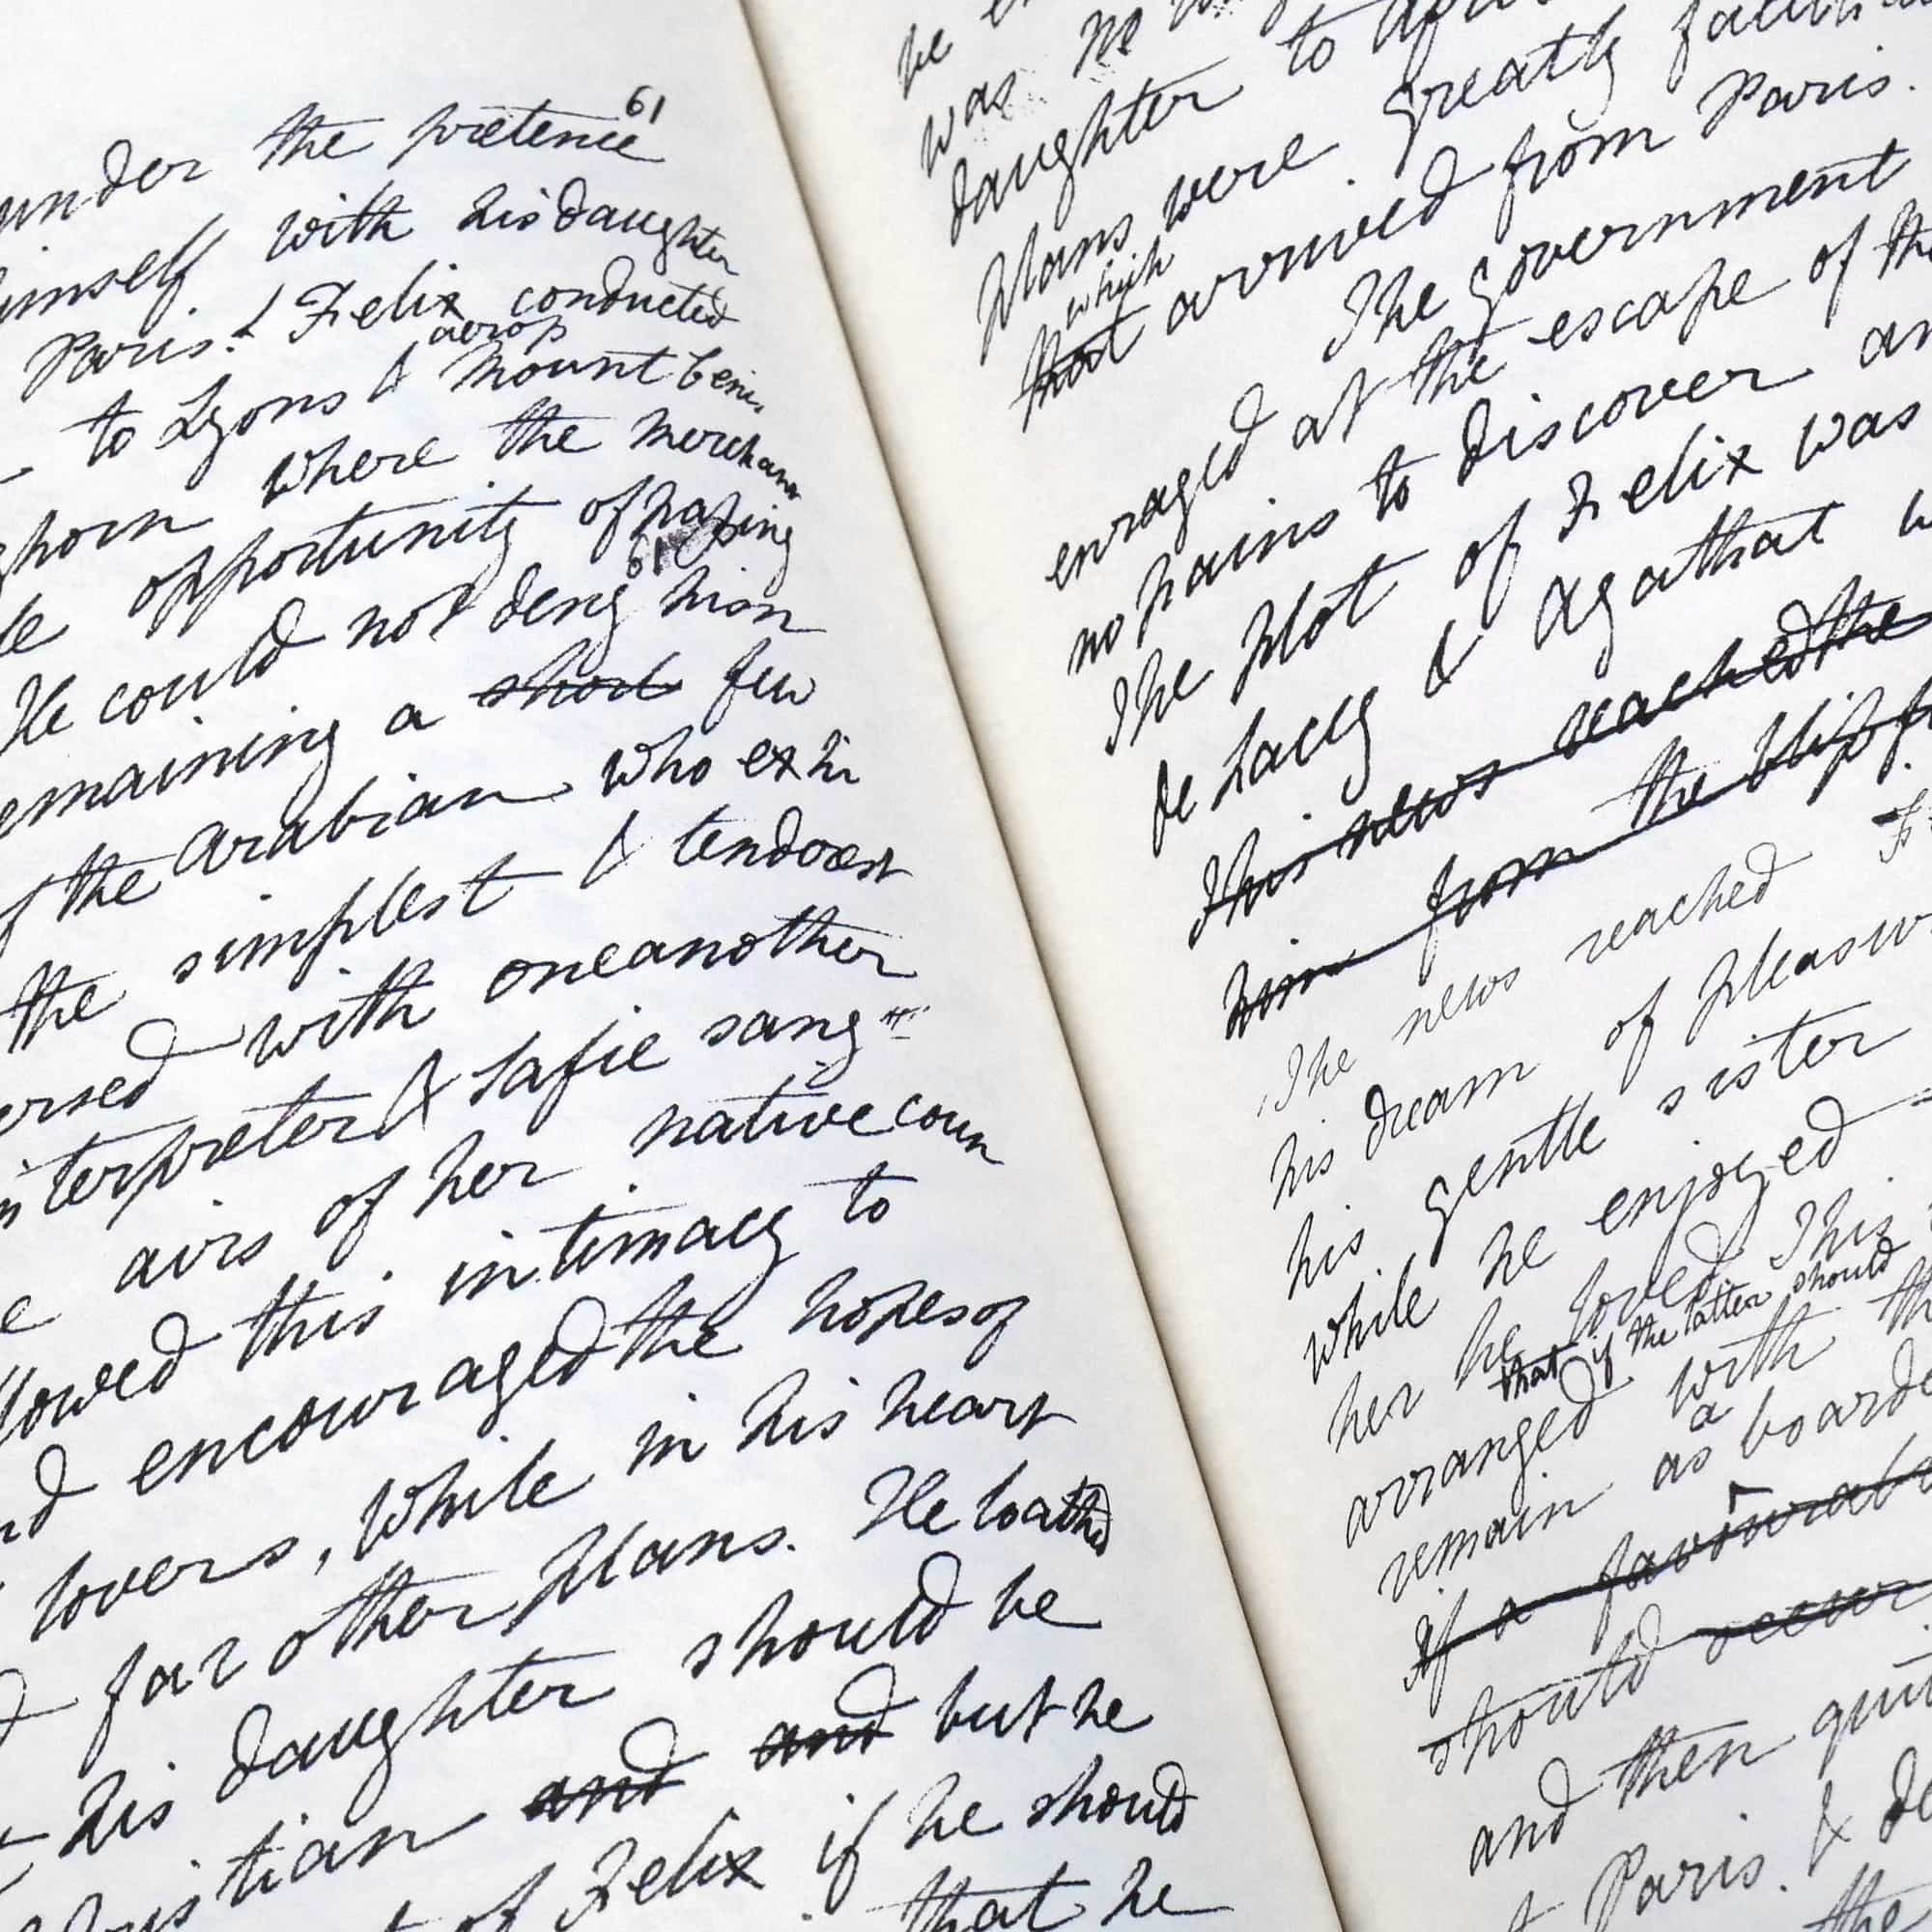 61
under the pretence
himself with his daughter
Paris. & Felix conducted
across
to Lyons & Mount Ceni
ghorn where the merchan
opportunity of passing
61
He could not deny him
emaining a short few
f the Arabian who exhi
the simplest & tenderest
ersed with one another
interpreter & Safie sang
airs of her native coun
llowed this intimacy to
nd encouraged the hopes of
lovers, while in his heart
far other plans. He loathed
his daughter should be
istian and and but he
of Felix if he should
that he
be
was
daughter to
Plans were greatly facilita
which
that arrived from Paris.
The Government
enraged at the escape of the
no pains to discover an
The plot of Felix was
De Lacey & Agatha
This news reached the
him from the
The news reached F
his dream of pleasur
his gentle sister
while he enjoyed
her he loved. This
that if the latter should
arranged with th
a
remain as boarde
If a favourab
should occur
and then quit
Paris. & de
the